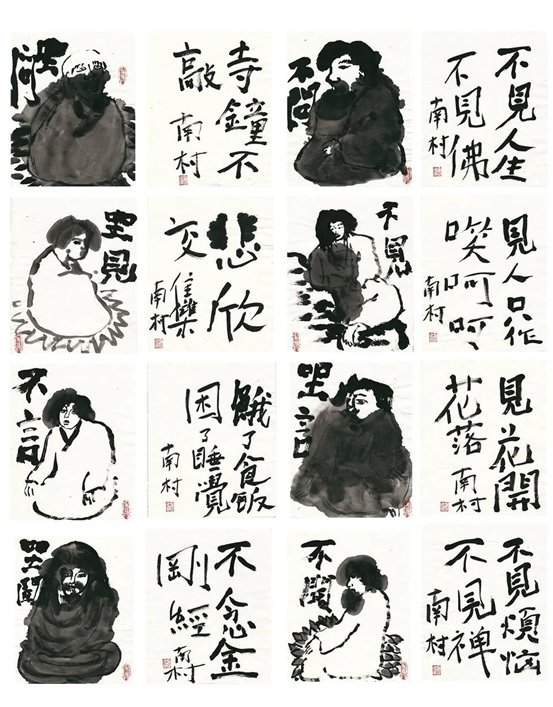 坐問
寺鐘不
敲
南村
不問
不見人生
不見佛
南村
坐見
悲欣
交集
南村
不見
見人只作
咲呵呵
南村
不言
餓了食飯
困了睡覺
南村
坐言
見花開
花落
南村
坐聞
不念金
剛經
南村
不聞
不見煩惱
不見禅
南村